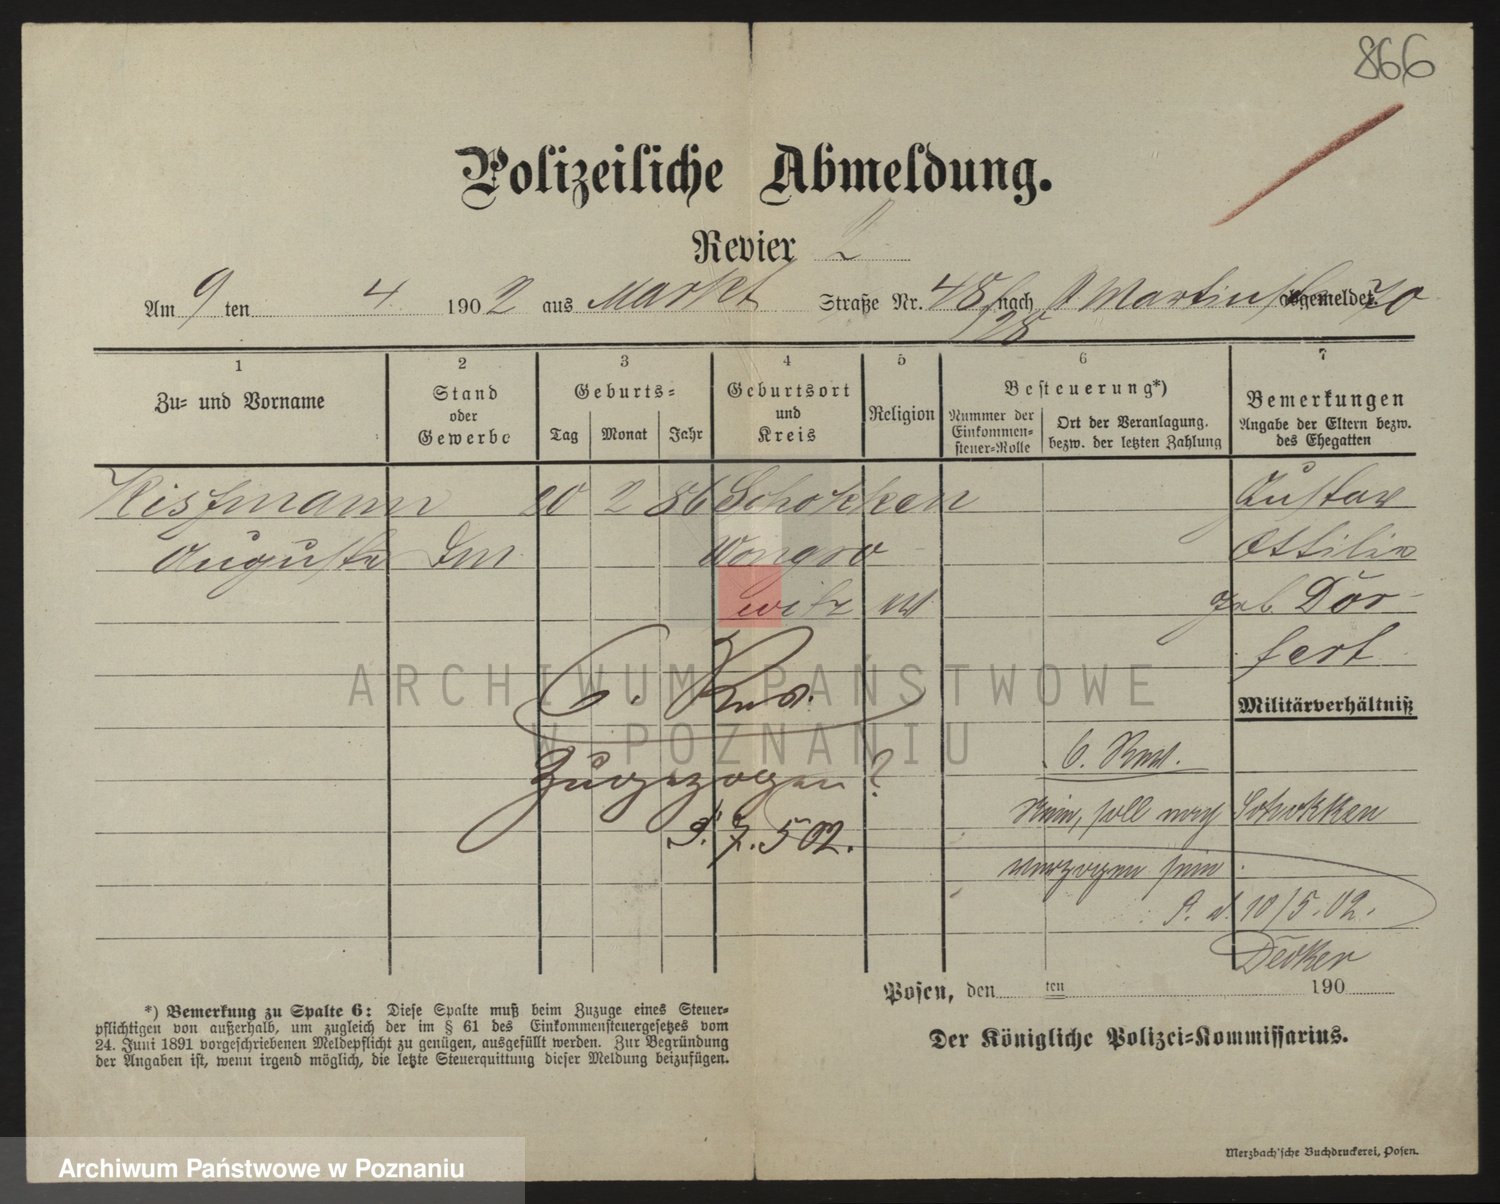 866
Polizeiliche Abmeldung.
Revier 2
Am 9 ten 4. 1902 aus Markt Straße Nr. 48 nach Martinstr 70 abgemeldet.
28
1 2 3 4 5 6 7
Zu- und Vorname
Stand oder Gewerbe
Geburts-
Tag Monat Jahr
Geburtsort und Kreis
Religion
Besteuerung*)
Nummer der Einkommen-steuer-Rolle
Ort der Veranlagung. bezw. der letzten Zahlung
Bemerkungen
Angabe der Eltern bezw. des Ehegatten
20 2 86 Schokken Gustav
Auguste Wongro Ottilie
witz geb. Dör-
fert
Militärverhältniß
6. Rev.
Zugezogen?
3. 7. 5 02.
6. Rev.
Nein, soll nach Schokken
verzogen sein.
10/5. 02.
Decker
Posen, den ten 190
Der Königliche Polizei-Kommissarius.
*) Bemerkung zu Spalte 6: Diese Spalte muß beim Zuzuge eines Steuer-
pflichtigen von außerhalb, um zugleich der im § 61 des Einkommensteuergesetzes vom
24. Juni 1891 vorgeschriebenen Meldepflicht zu genügen, ausgefüllt werden. Zur Begründung
der Angaben ist, wenn irgend möglich, die letzte Steuerquittung dieser Meldung beizufügen.
Merzbach'sche Buchdruckerei, Posen.
ARCHIWUM PAŃSTWOWE
W POZNANIU
Archiwum Państwowe w Poznaniu